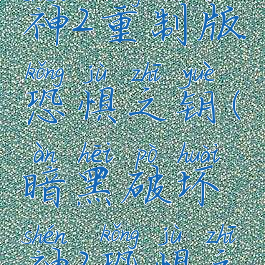 神2重制版
kǒng jù zhī yuè
恐惧之钥(
àn hēi pò huài
暗黑破坏
shén kǒng jù zhī
神2恐惧之